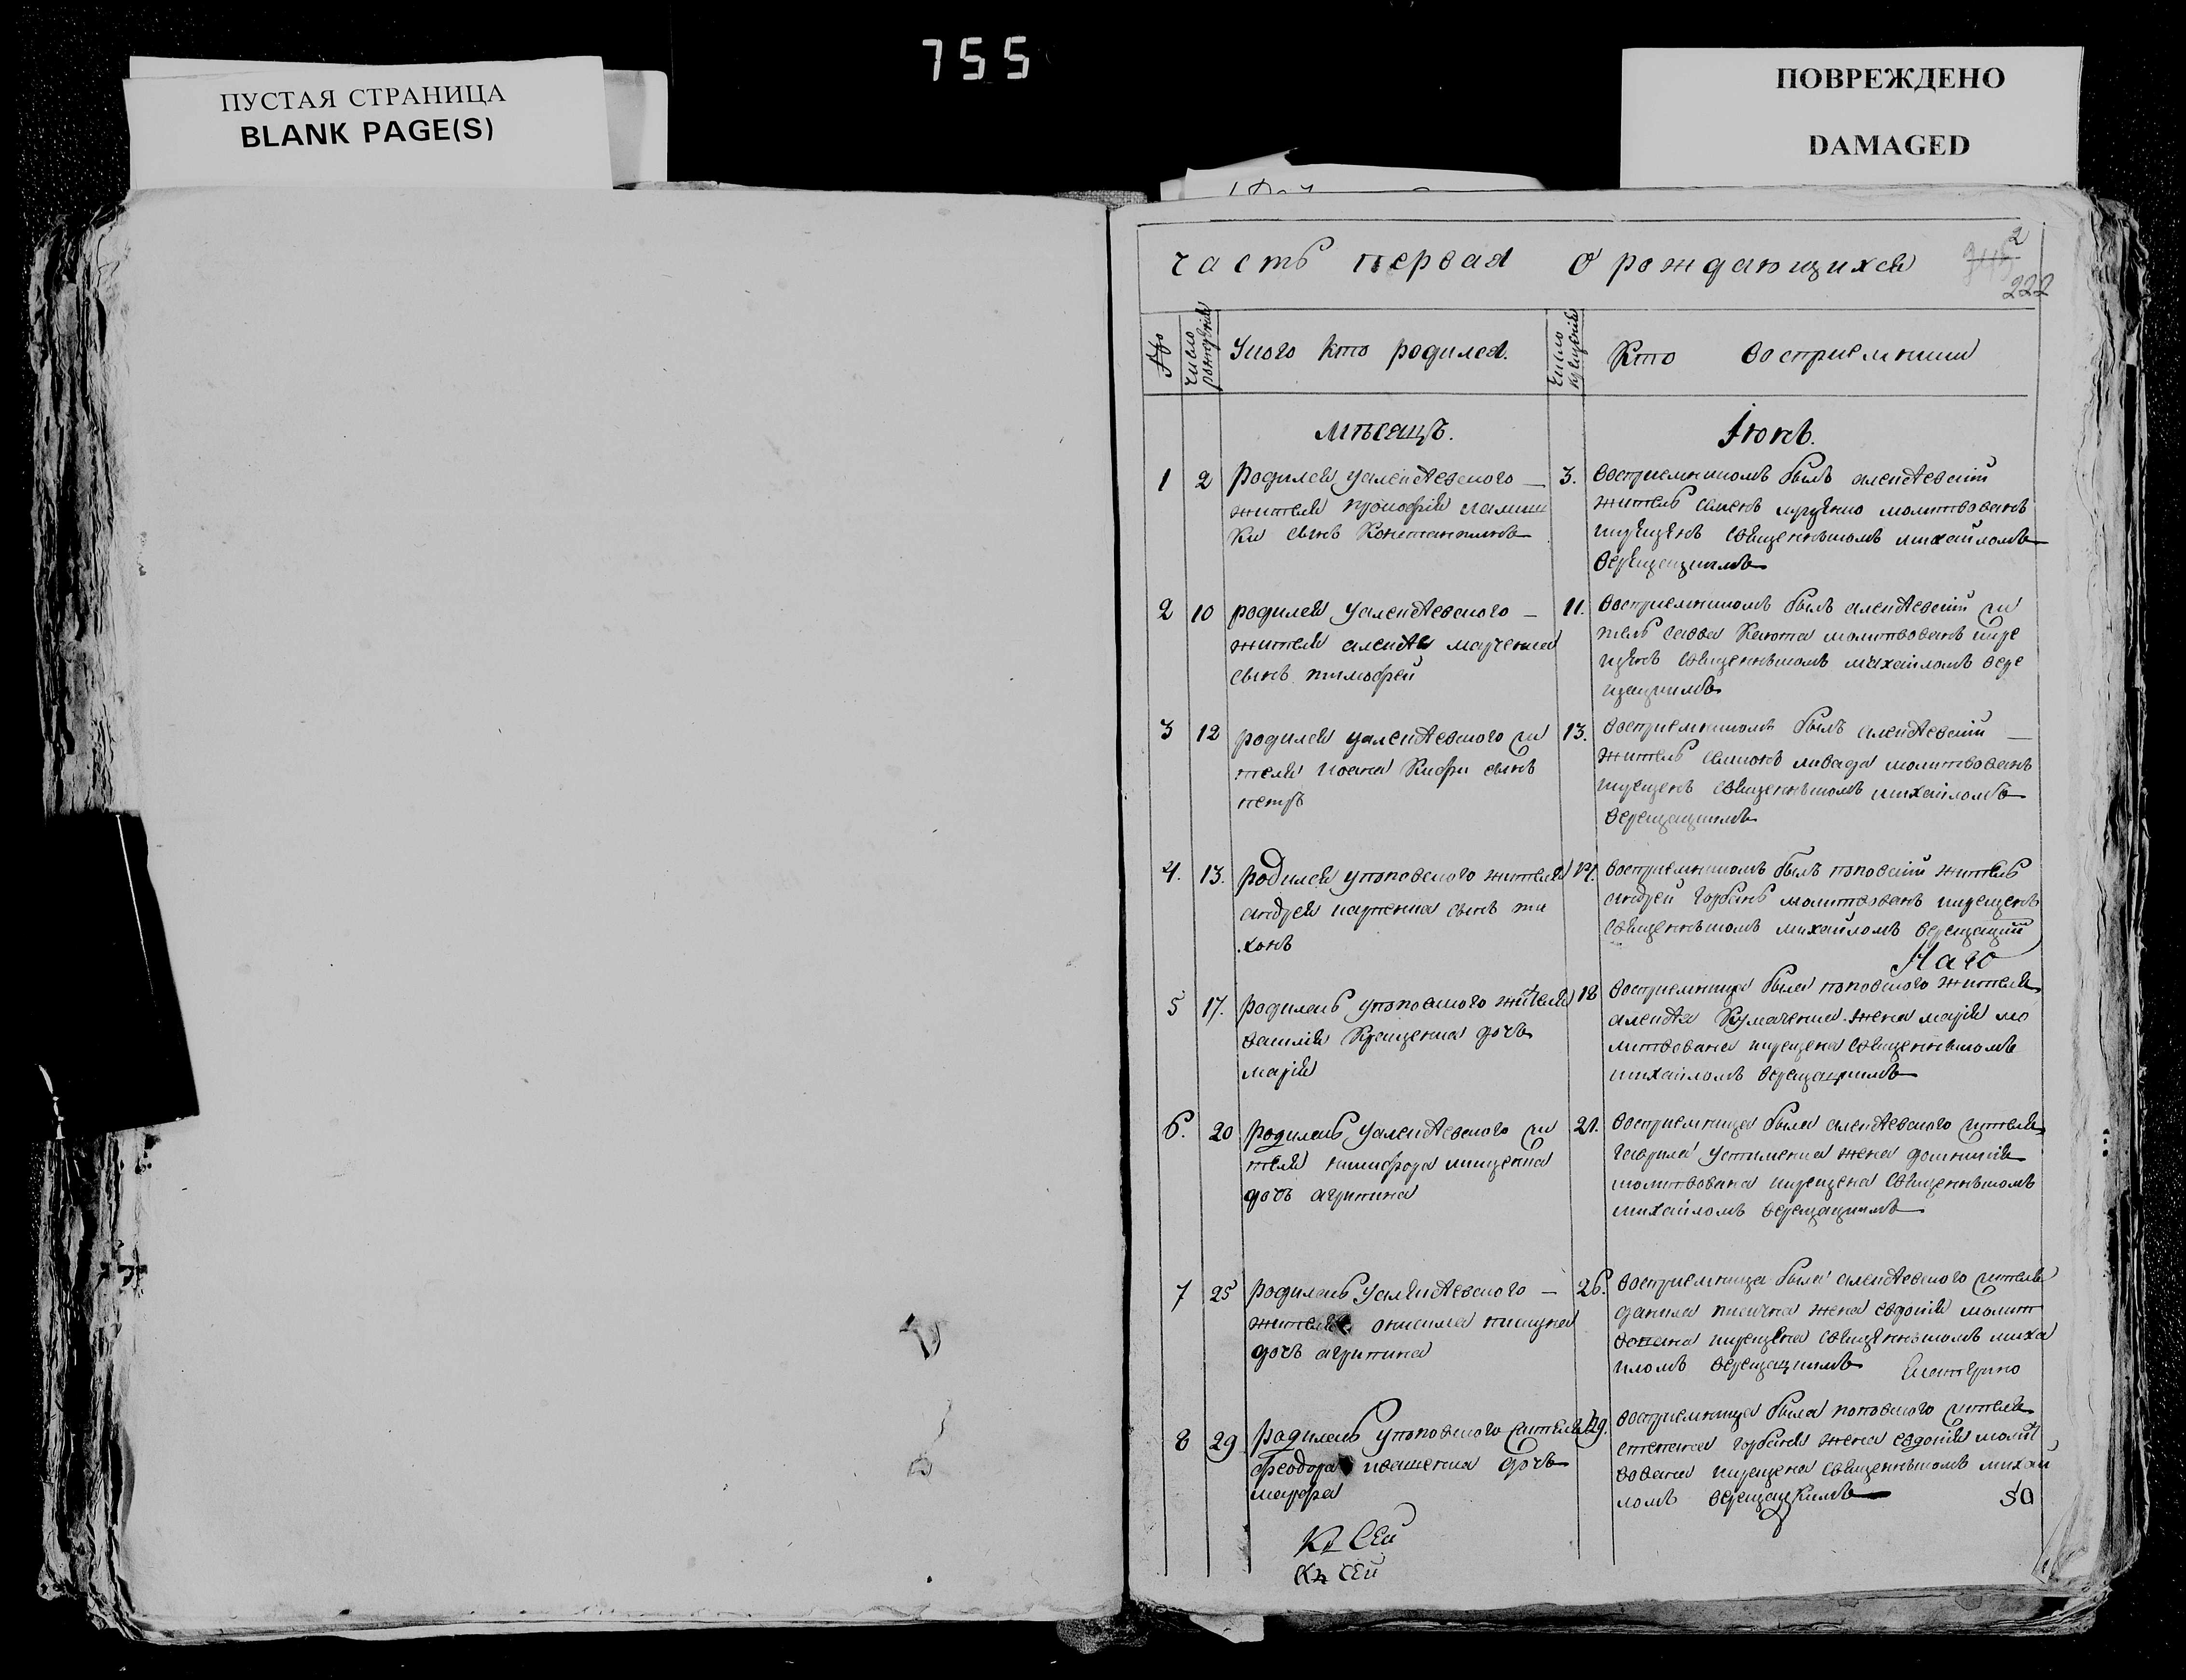 755
ПУСТАЯ СТРАНИЦА
BLANK PAGE(S)
ПОВРЕЖДЕНО
DAMAGED
часть первая о рождающихся
2
222
№
число рождения
У кого кто родился.
число крещения
Кто восприемники
Мѣсяцъ.
Іюнь.
1 2 3.
родился уалексѣевского
жителя прокофия
сынъ Константинъ
восприемникомъ былъ алексѣевский
житель семенъ молитвованъ
икрещенъ священникомъ михаиломъ
верещацкимъ
2 10 11.
родился уалексѣевского
жителя алексѣя марченка
сынъ тимофей
восприемникомъ былъ алексѣевский жи
тель савва молитвованъ икре
щенъ священникомъ михаиломъ вере
щацкимъ
3 12 13.
родился уалексѣевского жи
теля иоана сынъ
петръ
восприемникомъ былъ алексѣевский
житель симонъ молитвованъ
икрещенъ священникомъ михаиломъ
верещацкимъ
4. 13. 14.
родился упоповского жителя
андрея сынъ ти
хонъ
восприемникомъ былъ поповский житель
андрей горбань молитвованъ икрещенъ
священникомъ михаиломъ верещацкий
5 17. 18
родилась упоповского жителя
василия дочь
мария
восприемница была поповского жителя
алексѣя жена мария мо
литвована икрещена священникомъ
михаиломъ верещацкимъ
6. 20 21.
родилась уалексѣевского жи
теля никифора мищенка
дочь агрипина
восприемница была алексѣевского жителя
гаврила устименка жена домникия
молитвована икрещена священникомъ
михаиломъ верещацкимъ
7 25 26.
родилась уалексѣевского
жителя онисима пищуна
дочь агрипина
восприемница была алексѣевского жителя
данила жена евдокия молит
вована икрещена священникомъ миха
иломъ верещацкимъ
8 29 29.
родилась упоповского жителя
феодора ивашенка дочь
марфа
восприемница была поповского жителя
степана горбаня жена евдокия молит
вована икрещена священникомъ михаи
ломъ верещацкимъ
Къ сей
Къ сей